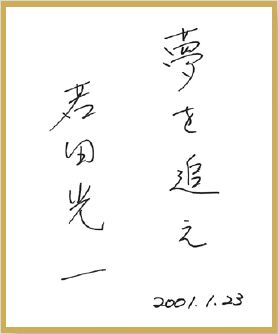 夢を追え
若田光一
2001.1.23